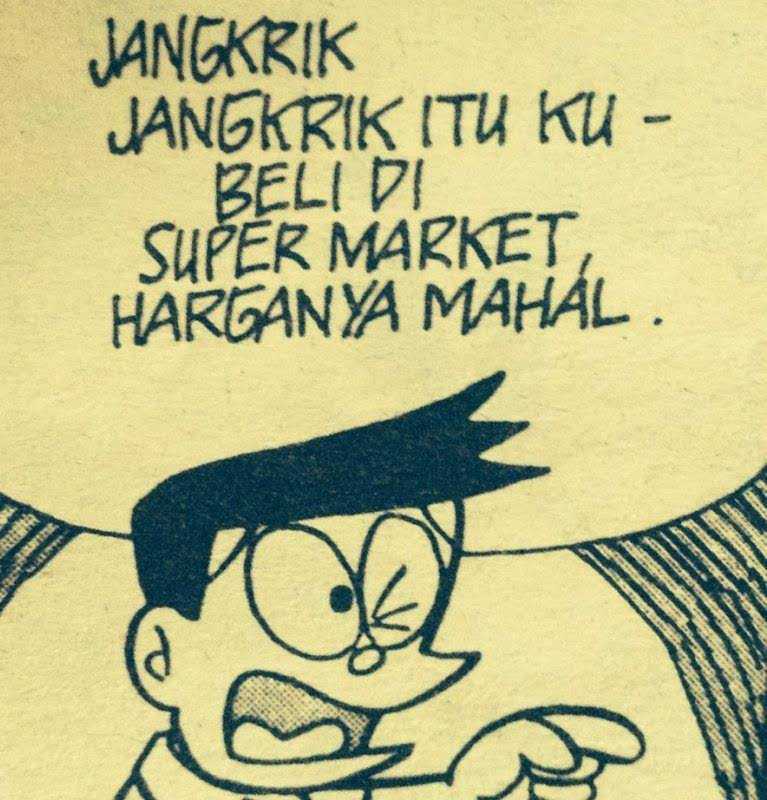 JANGKRIK
JANGKRIK ITU KU -
BELI DI
SUPER MARKET,
HARGANYA MAHAL.